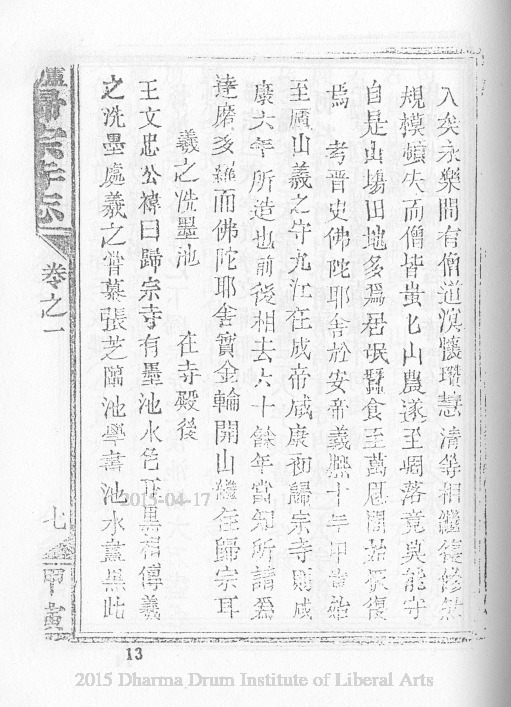 入矣永樂間有僧道溟懷瓚慧清等相繼復修然
規模頓失而僧皆蚩匕山農遂至凋落竟莫能守
自是山場田地多爲居氓蠶食至萬曆間始恢復
焉　考晉史佛陀耶舍於安帝義熙十年甲寅始
至廬山羲之守九江在成帝咸康初歸宗寺則咸
康六年所造也前後相去六十餘年當知所請爲
達磨多羅而佛陀耶舍實金輪開山繼在歸宗耳
羲之洗墨池　在寺殿後
王文忠公禕曰歸宗寺有墨池水色正黑相傳羲
之洗墨處羲之嘗慕張芝臨池學書池水盡黑此
廬山歸宗寺志
卷之一
七
甲寅
2015-04-17
13
2015 Dharma Drum Institute of Liberal Arts